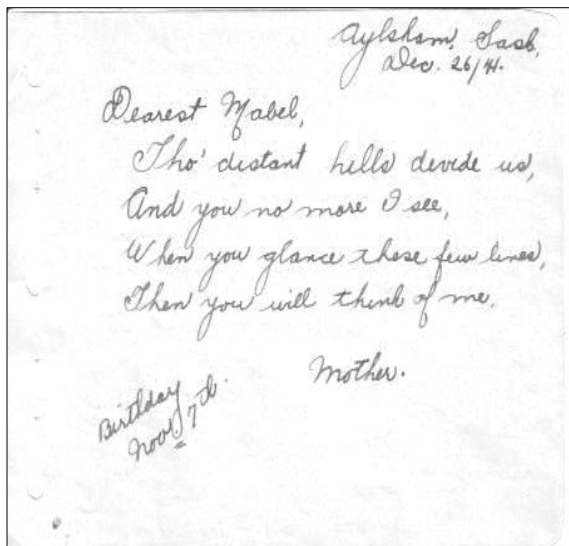 Aylsham, Sask,
Dec. 26/41.
Dearest Mabel,
Tho' distant hills devide us,
And you no more I see,
When you glance these few lines,
Then you will think of me.
Mother.
Birthday
Nov. 7th.